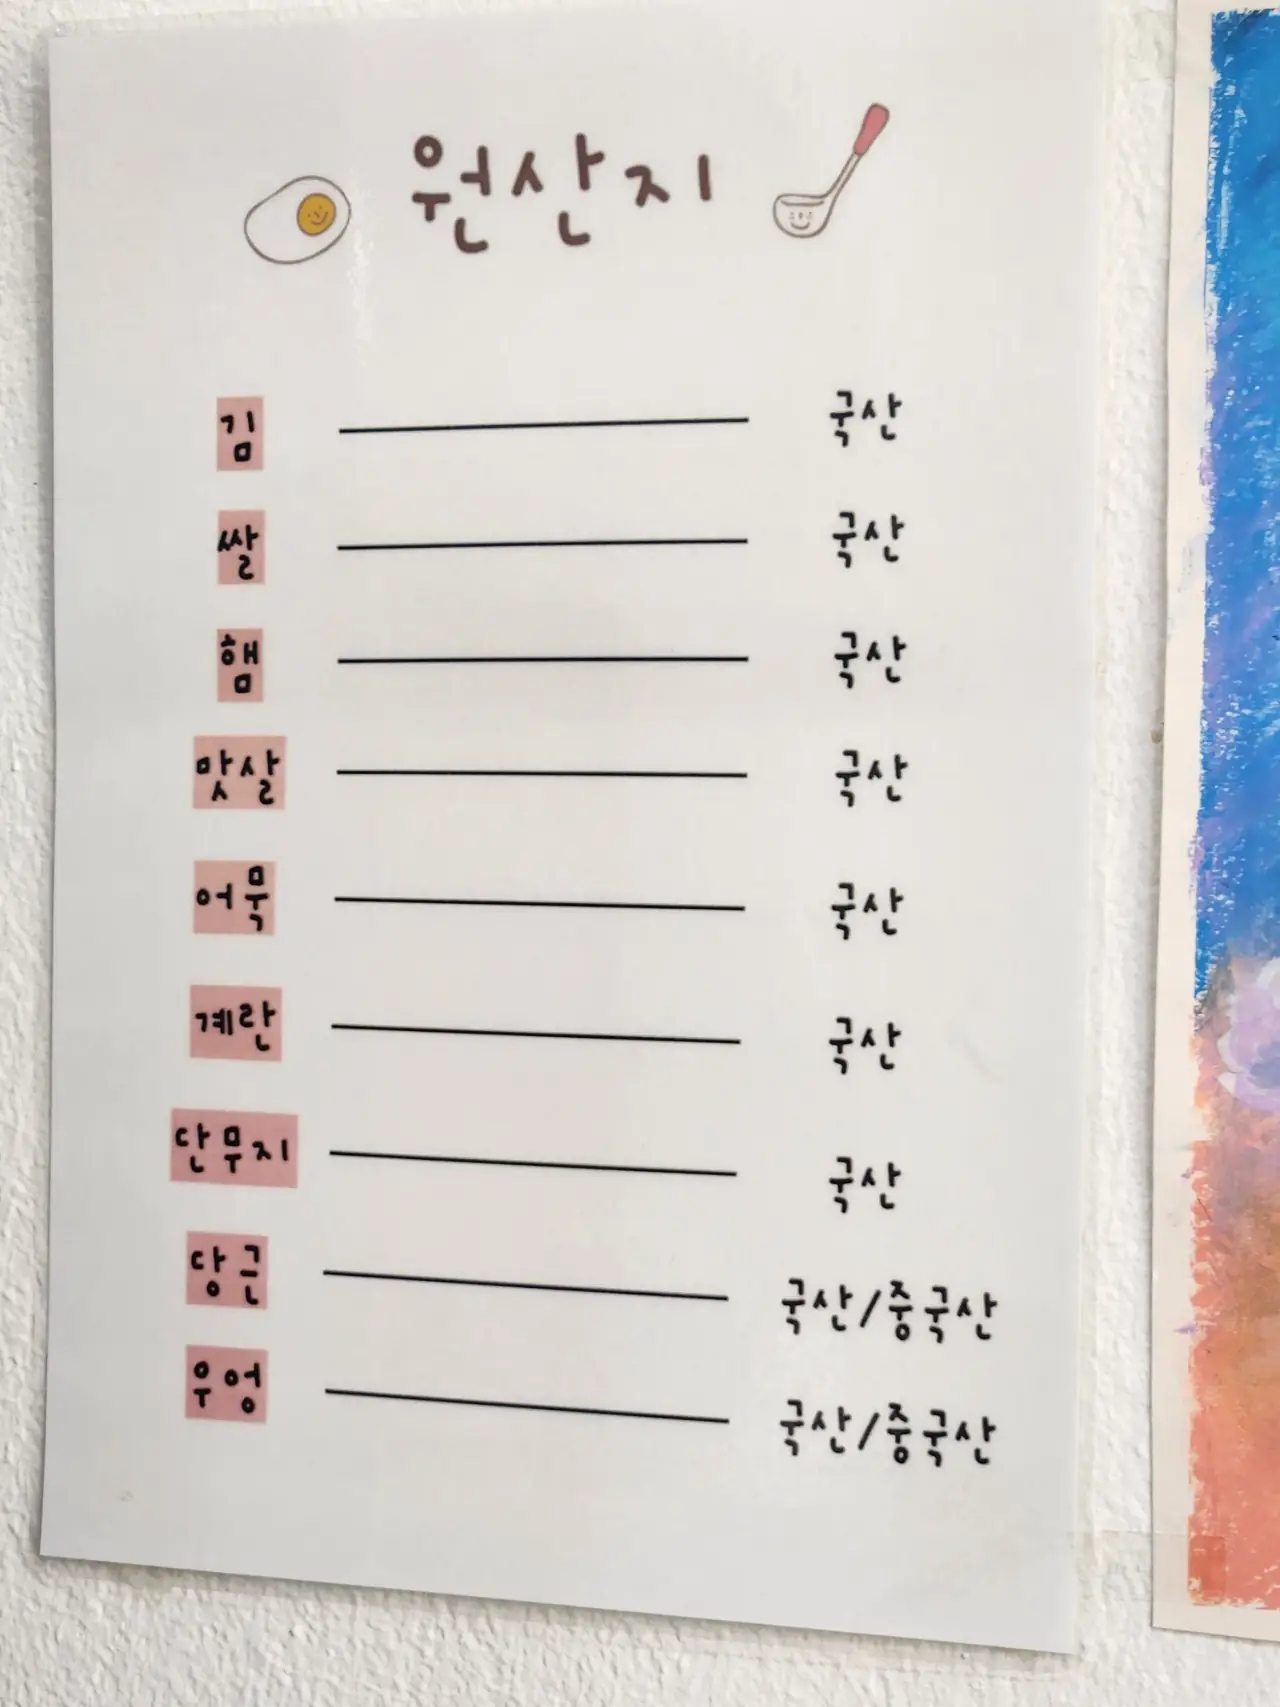 원산지
김 국산
쌀 국산
햄 국산
맛살 국산
어묵 국산
계란 국산
단무지 국산
당근 국산/중국산
우엉 국산/중국산